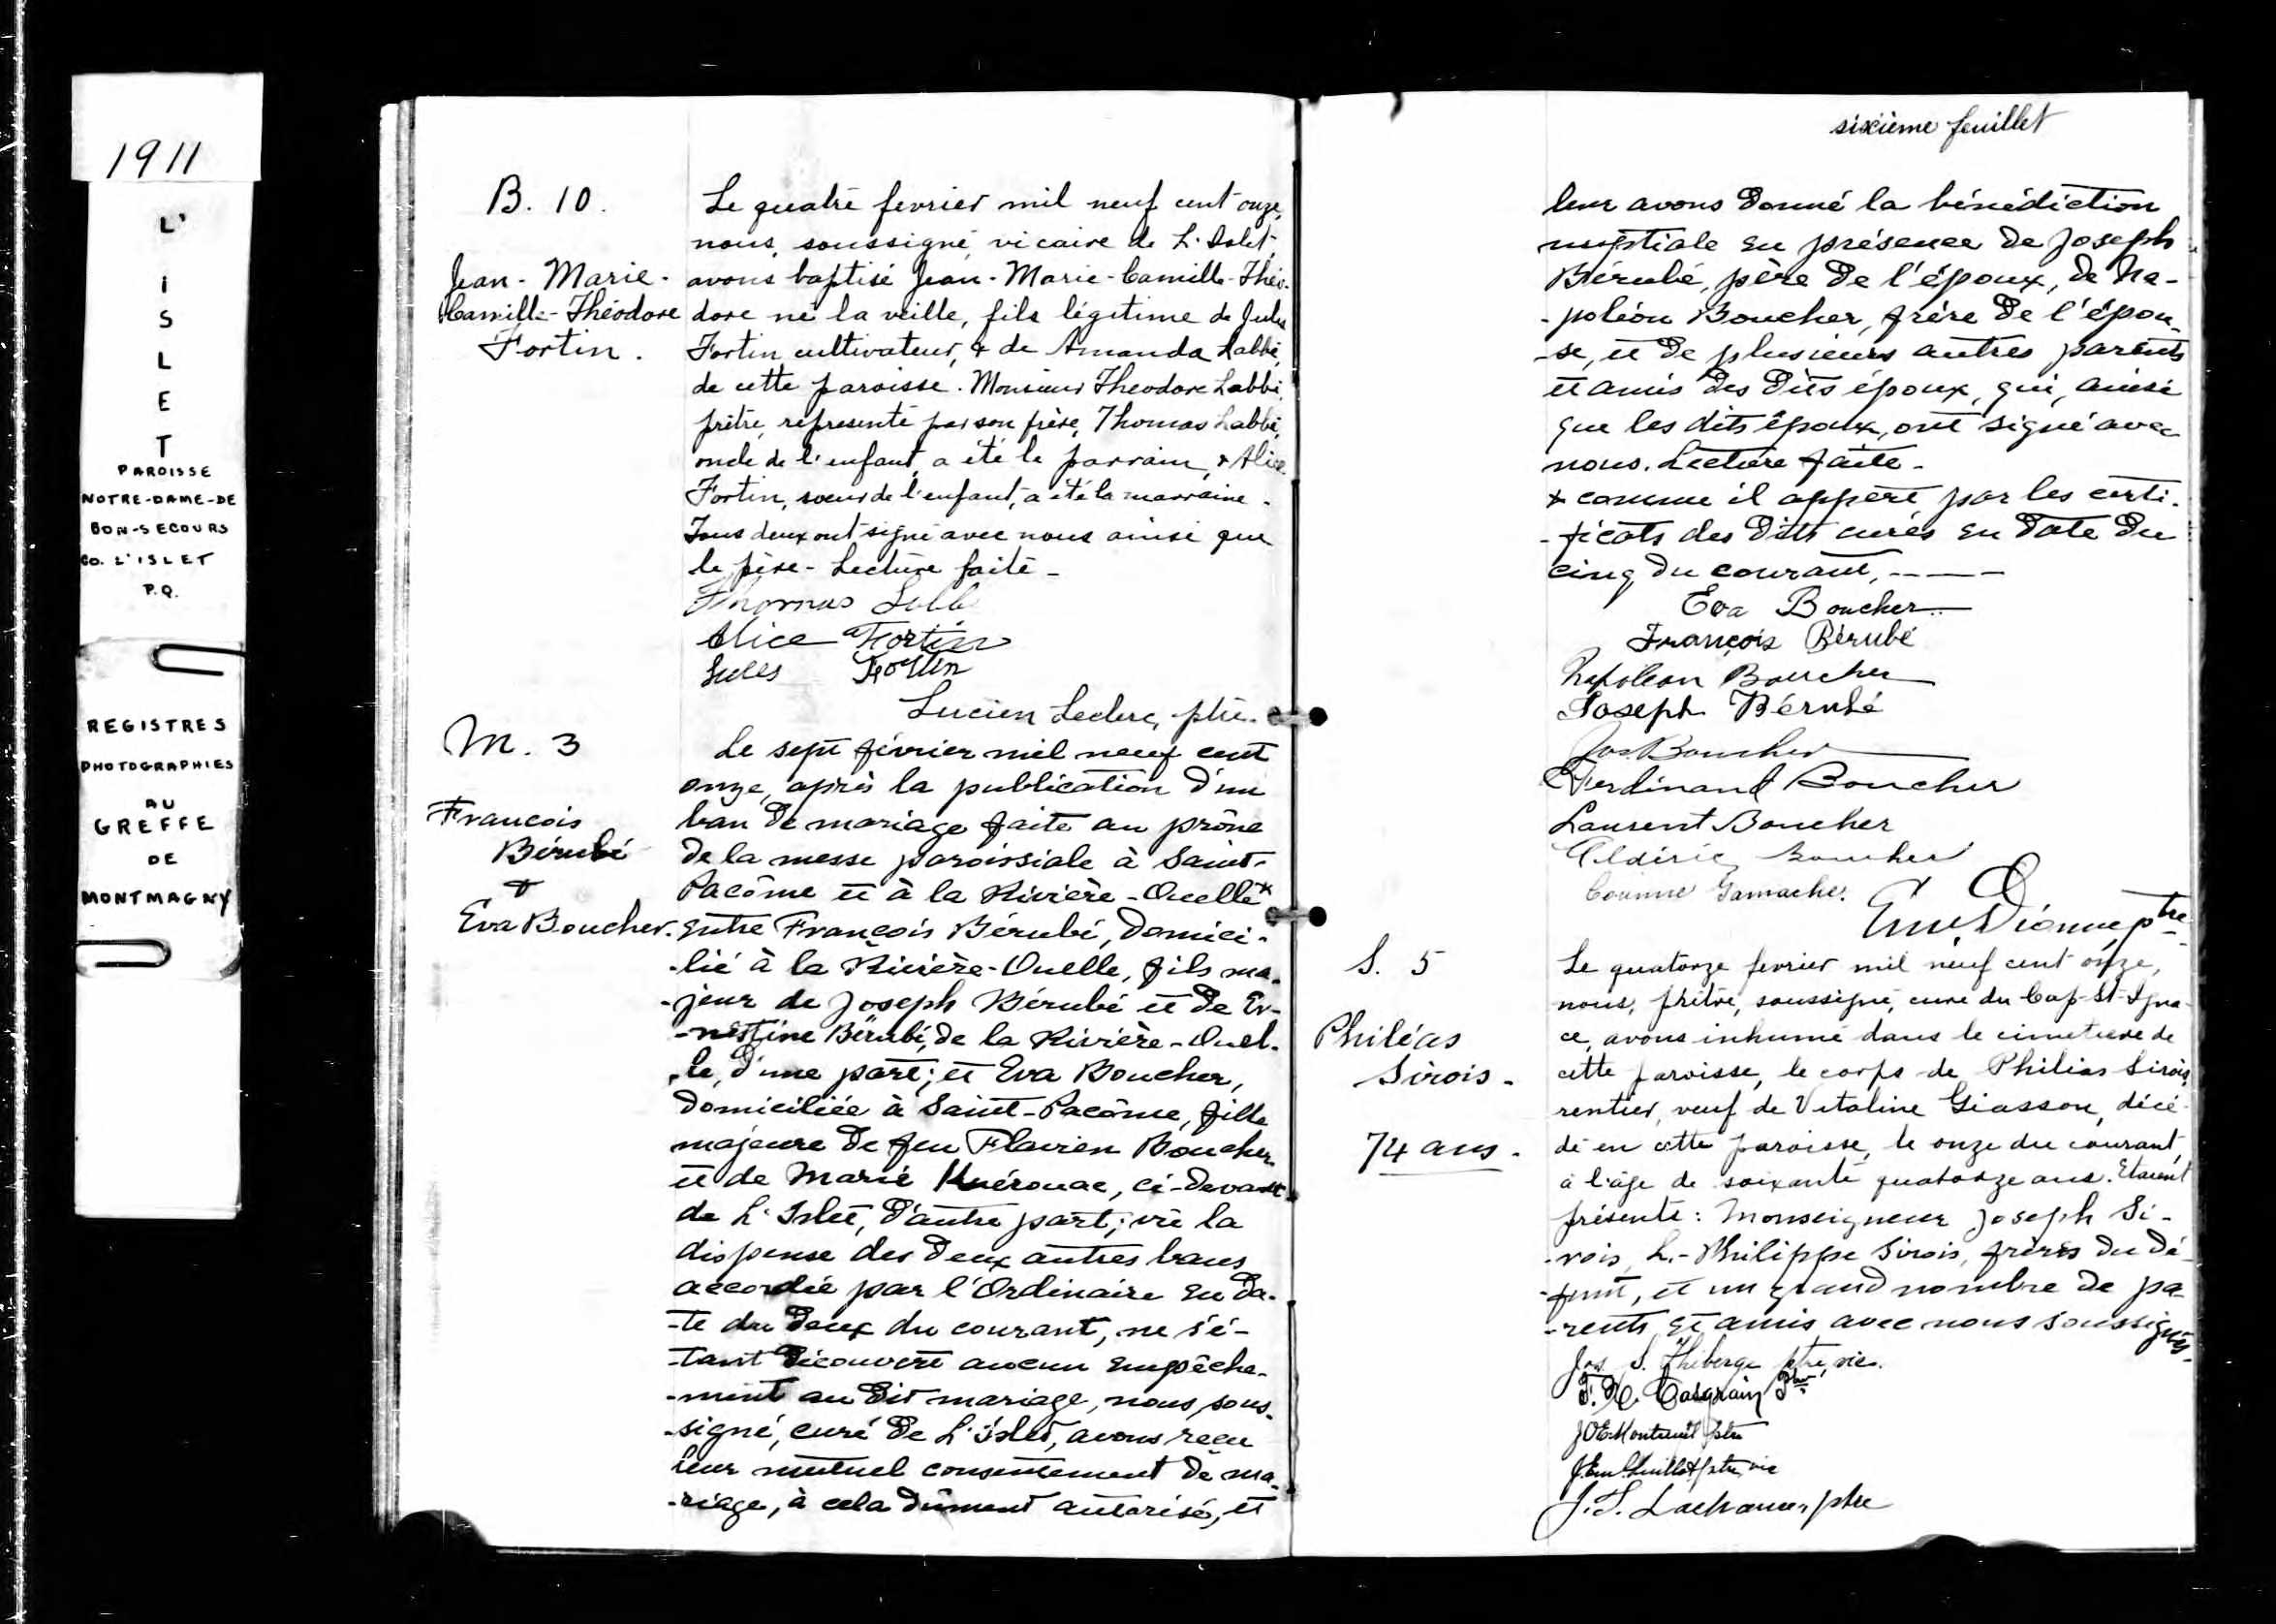 1911
L'
I
S
L
E
T
PAROISSE
NOTRE-DAME-DE
BON-SECOURS
CO. L'ISLET
P.Q.
REGISTRES
PHOTOGRAPHIES
AU
GREFFE
DE
MONTMAGNY
B. 10.
Jean-Marie-
Camille-Théodore
Fortin.
Le quatre fevrier mil neuf cent onze,
nous, soussigné, vicaire de L'Islet
avons baptisé Jean-Marie-Camille-Théo-
dore né la veille, fils légitime de Jules
Fortin cultivateur, & de Amanda Labbé,
de cette paroisse. Monsieur Theodore Labbé,
prêtre, représenté par son frère, Thomas Labbé,
oncle de l'enfant, a été le parrain, & Alice
Fortin, soeur de l'enfant, a été la marraine.
Tous deux ont signé avec nous ainsi que
le père - Lecture faite -
Thomas Labbé
Alice Fortin
Jules Fortin
Lucien Leclerc, ptre.
M. 3
François
Bérubé
&
Eva Boucher.
Le sept février mil neuf cent
onze, après la publication d'un
ban de mariage faite au prône
de la messe paroissiale à Saint-
Pacôme et à la Rivière-Ouelle*
entre François Bérubé, domici-
-lié à la Rivière-Ouelle, fils ma-
-jeur de Joseph Bérubé et de Er-
-nestine Bérubé, de la Rivière-Ouel-
-le, d'une part; et Eva Boucher,
domiciliée à Saint-Pacôme, fille
majeure de feu Flavien Boucher
et de Marie Kuérouac, ci-devant
de L'Islet, d'autre part; vu la
dispense des deux autres bans
accordée par l'Ordinaire en da-
-te du deux du courant, ne s'é-
-tant découvert aucun empêche-
-ment au dit mariage, nous, sous-
-signé, curé de L'Islet, avons reçu
leur mutuel consentement de ma-
-riage, à cela dûment autorisé, et
sixième feuillet
leur avons donné la bénédiction
nuptiale en présence de Joseph
Bérubé, père de l'époux, de Na-
-poléon Boucher, frère de l'épou-
-se, et de plusieurs autres parents
et amis des dits époux, qui, ainsi
que les dits époux, ont signé avec
nous. Lecture faite -
* comme il appert par les certi-
-ficats des dits curés en date du
cinq du courant, ----
Eva Boucher
François Bérubé
Napoléon Boucher
Joseph Bérubé
Jos Boucher
Ferdinand Boucher
Laurent Boucher
Aldéric Boucher
Corinne Gamache.
Em. Dionne ptre
S. 5
Philéas
Sirois -
74 ans -
Le quatorze fevrier mil neuf cent onze,
nous, prêtre, soussigné, curé du Cap-St-Igna-
ce, avons inhumé dans le cimetière de
cette paroisse, le corps de Philias Sirois,
rentier, veuf de Vitaline Giasson, décé-
dé en cette paroisse, le onze du courant,
à l'âge de soixante quatorze ans. Etaient
présents: Monseigneur Joseph Si-
-rois, L.-Philippe Sirois, frères du dé-
-funt, et un grand nombre de pa-
-rents et amis avec nous soussignés -
Jos S. Théberge ptre, vic.
F. X. Casgrain Ptre
J O E Montreuil ptre
J. Em. Ouillet ptre vic
J. S. Lachance, ptre